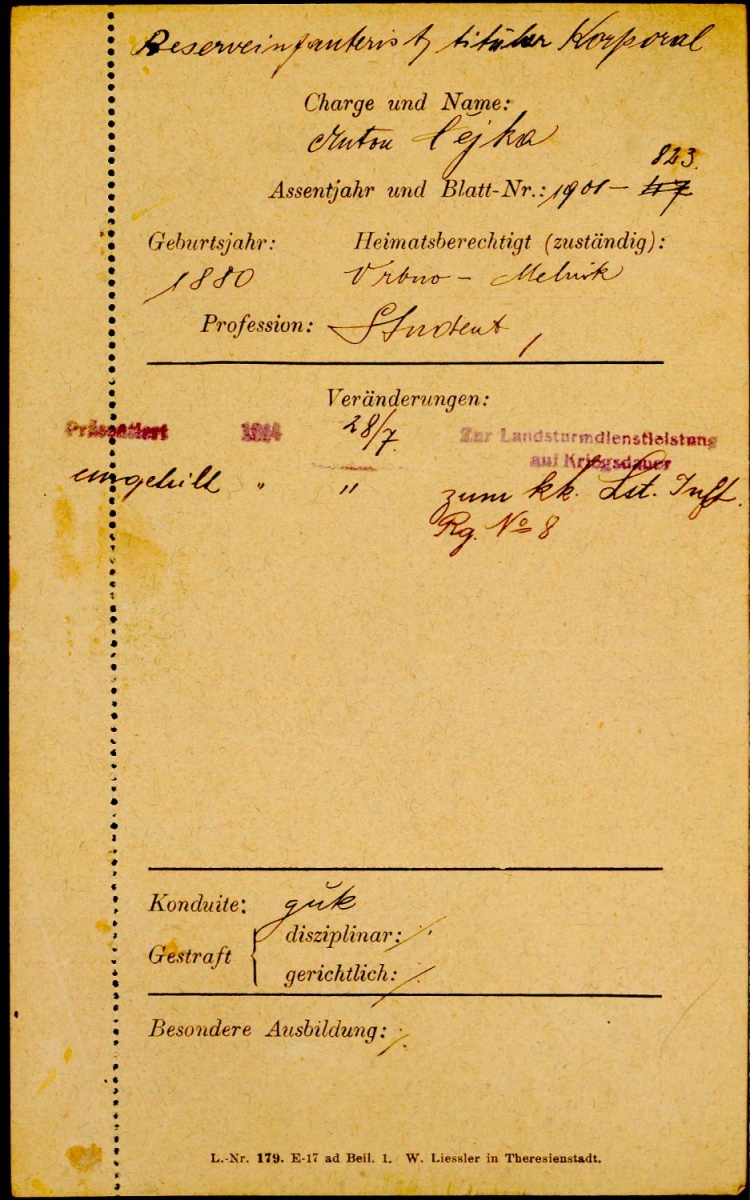 Reserveinfanterist, titular Korporal
Charge und Name:
Anton Čejka
823.
Assentjahr und Blatt-Nr.: 1901 – 47
Geburtsjahr: Heimatsberechtigt (zuständig):
1880 Vrbno – Melnik
Profession: Student
Veränderungen:
Präsentiert 1914 28/7. Zur Landsturmdienstleistung
auf Kriegsdauer
eingeteilt " " zum kk. Lst. Inft.
Rg. No 8
Konduite: gut
Gestraft disziplinar: ⁒
gerichtlich: ⁒
Besondere Ausbildung: ⁒
L.-Nr. 179. E-17 ad Beil. 1. W. Liessler in Theresienstadt.